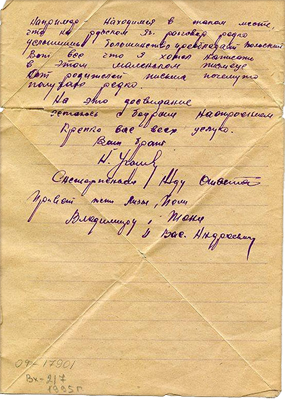 Например находимся в таком месте,
что на русском яз. разговор редко
услышишь большинство преобладают польский
Вот все что я хотел написать
в этом маленьком письме
От родителей письма почему-то
получаю редко
На это досвидание
остаюсь с бодрым настроением
Крепко вас всех целую.
Ваш брат
Н.
Жду ответа
Привет тети Лизы, Поли
Владимиру, Тони
и Вас. Андреевичу
Вх-2/7